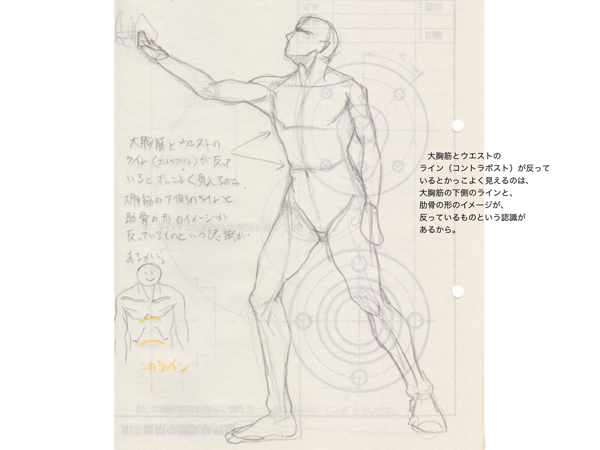 大胸筋とウエストの
ライン(コントラポスト)が反って
いるとかっこよく見えるのは、
大胸筋の下側のラインと
肋骨の形のイメージが
反っているものという認識が
あるから。
このライン
大胸筋とウエストの
ライン（コントラポスト）が反って
いるとかっこよく見えるのは、
大胸筋の下側のラインと、
肋骨の形のイメージが、
反っているものという認識が
あるから。